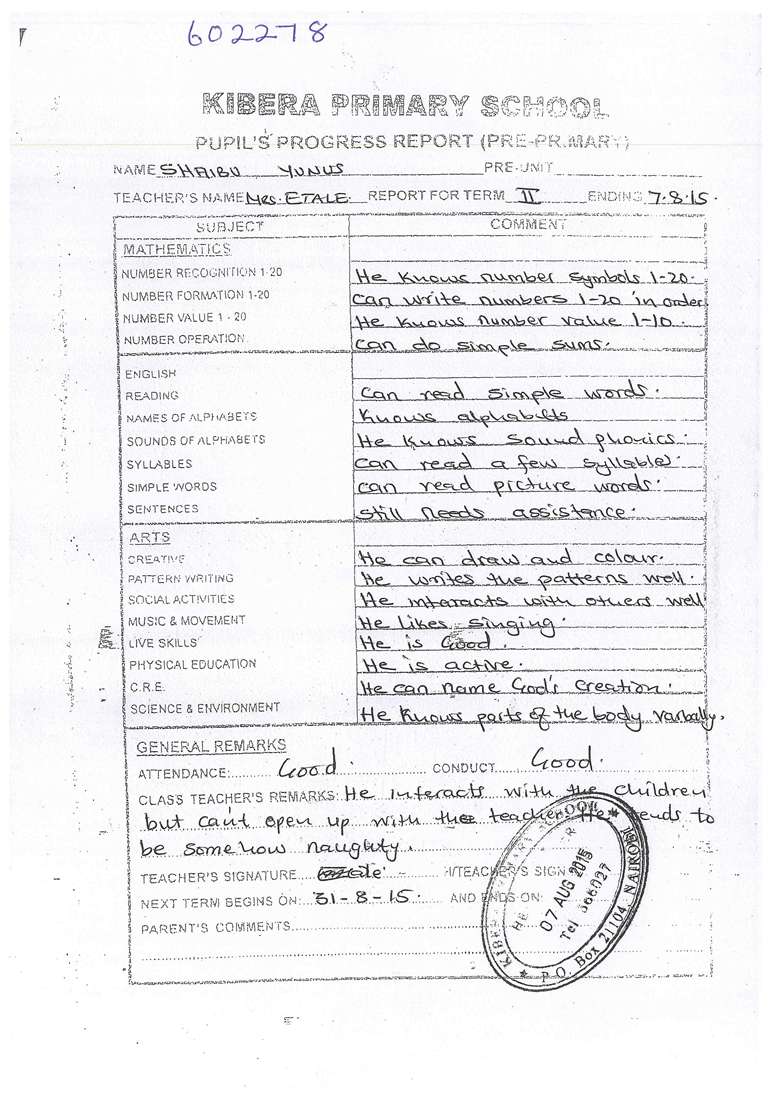 602278
KIBERA PRIMARY SCHOOL
PUPIL'S PROGRESS REPORT (PRE-PRIMARY)
NAME SHAIBU YUNUS PRE-UNIT
TEACHER'S NAME Mrs. ETALE. REPORT FOR TERM II ENDING 7.8.15.
SUBJECT COMMENT
MATHEMATICS
NUMBER RECOGNITION 1-20 He knows number symbols 1-20.
NUMBER FORMATION 1-20 Can write numbers 1-20 in order
NUMBER VALUE 1 - 20 He knows number value 1-10.
NUMBER OPERATION. Can do simple sums.
ENGLISH
READING Can read simple words.
NAMES OF ALPHABETS Knows alphabets
SOUNDS OF ALPHABETS He knows sound phonics.
SYLLABLES Can read a few syllables.
SIMPLE WORDS Can read picture words.
SENTENCES Still needs assistance.
ARTS
CREATIVE He can draw and colour.
PATTERN WRITING He writes the patterns well.
SOCIAL ACTIVITIES He interacts with others well.
MUSIC & MOVEMENT He likes singing.
LIVE SKILLS He is Good.
PHYSICAL EDUCATION He is active.
C.R.E. He can name God's creation.
SCIENCE & ENVIRONMENT He knows parts of the body varbally.
GENERAL REMARKS
ATTENDANCE: Good. CONDUCT Good.
CLASS TEACHER'S REMARKS: He interacts with the children
but can't open up with the teacher. He tends to
be somehow naughty.
TEACHER'S SIGNATURE H/TEACHER'S SIGN
NEXT TERM BEGINS ON: 31-8-15. AND ENDS ON:
PARENT'S COMMENTS
KIBERA PRIMARY SCHOOL
07 AUG 2015
Tel 566027
P.O. Box 21104, NAIROBI